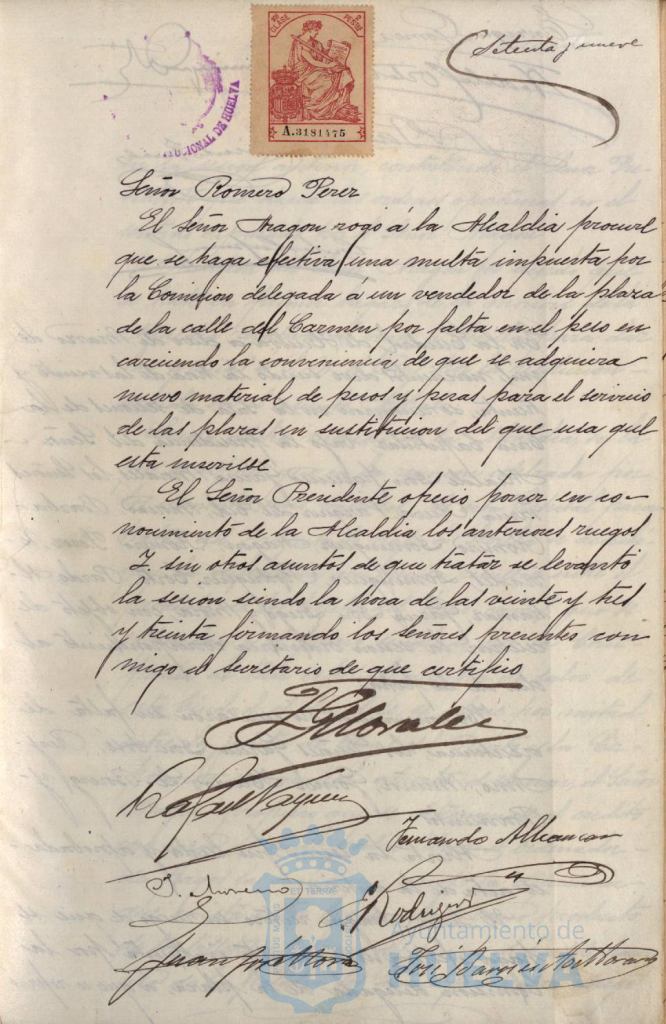 Setenta y nueve
10ª CLASE 2 PESETAS
A.3181475
CIONAL DE HUELVA
Señor Romero Perez
El Señor Aragon rogó á la Alcaldia procure
que se haga efectiva una multa impuesta por
la Comision delegada á un vendedor de la plaza
de la calle del Carmen por falta en el peso en
careciendo la conveniencia de que se adquiera
nuevo material de pesos y pesas para el servicio
de las plazas en sustitucion del que usa que
está inservible
El Señor Presidente ofrecio poner en co-
nocimiento de la Alcaldia los anteriores ruegos
Y sin otros asuntos de que tratar se levantó
la sesion siendo la hora de las veinte y tres
y treinta firmando los señores presentes con
migo el secretario de que certifico
Morales
Rafael Vazquez
Fernando
J. Moreno
Rodriguez
Juan José Mora
José
Ayuntamiento de
HUELVA